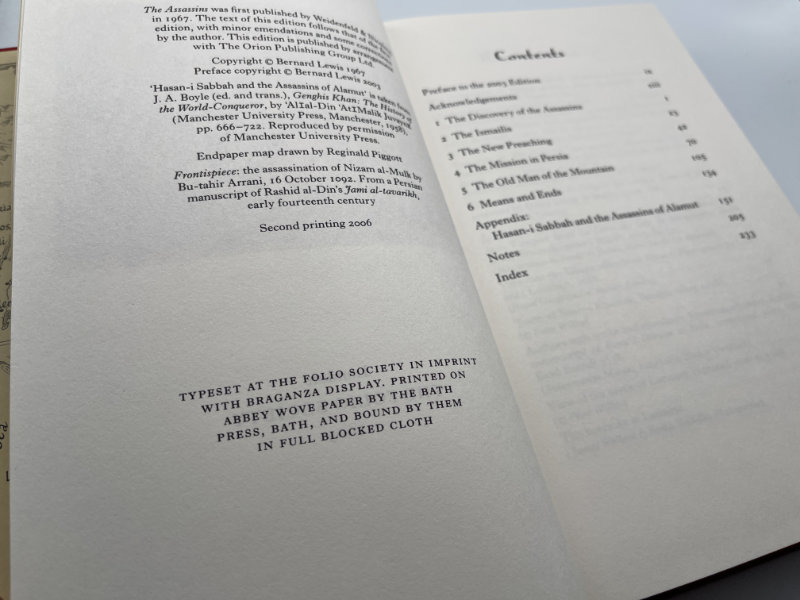 The Assassins was first published by Weidenfeld &
in 1967. The text of this edition follows that of the
edition, with minor emendations and some corrections
by the author. This edition is published by arrangement
with The Orion Publishing Group Ltd.
Copyright © Bernard Lewis 1967
Preface copyright © Bernard Lewis 2003
'Hasan-i Sabbah and the Assassins of Alamut' is taken from
J. A. Boyle (ed. and trans.), Genghis Khan: The History of
the World-Conqueror, by 'AlIal-Din 'AtIMalik Juvayni
(Manchester University Press, Manchester, 1958),
pp. 666–722. Reproduced by permission
of Manchester University Press.
Endpaper map drawn by Reginald Piggott
Frontispiece: the assassination of Nizam al-Mulk by
Bu-tahir Arrani, 16 October 1092. From a Persian
manuscript of Rashid al-Din's Jami al-tavarikh,
early fourteenth century
Second printing 2006
TYPESET AT THE FOLIO SOCIETY IN IMPRINT
WITH BRAGANZA DISPLAY. PRINTED ON
ABBEY WOVE PAPER BY THE BATH
PRESS, BATH, AND BOUND BY THEM
IN FULL BLOCKED CLOTH
Contents
Preface to the 2003 Edition ix
Acknowledgements
1 The Discovery of the Assassins 1
2 The Ismailis
3 The New Preaching
4 The Mission in Persia
5 The Old Man of the Mountain 105
6 Means and Ends
Appendix:
Hasan-i Sabbah and the Assassins of Alamut 151
Notes 205
Index 233